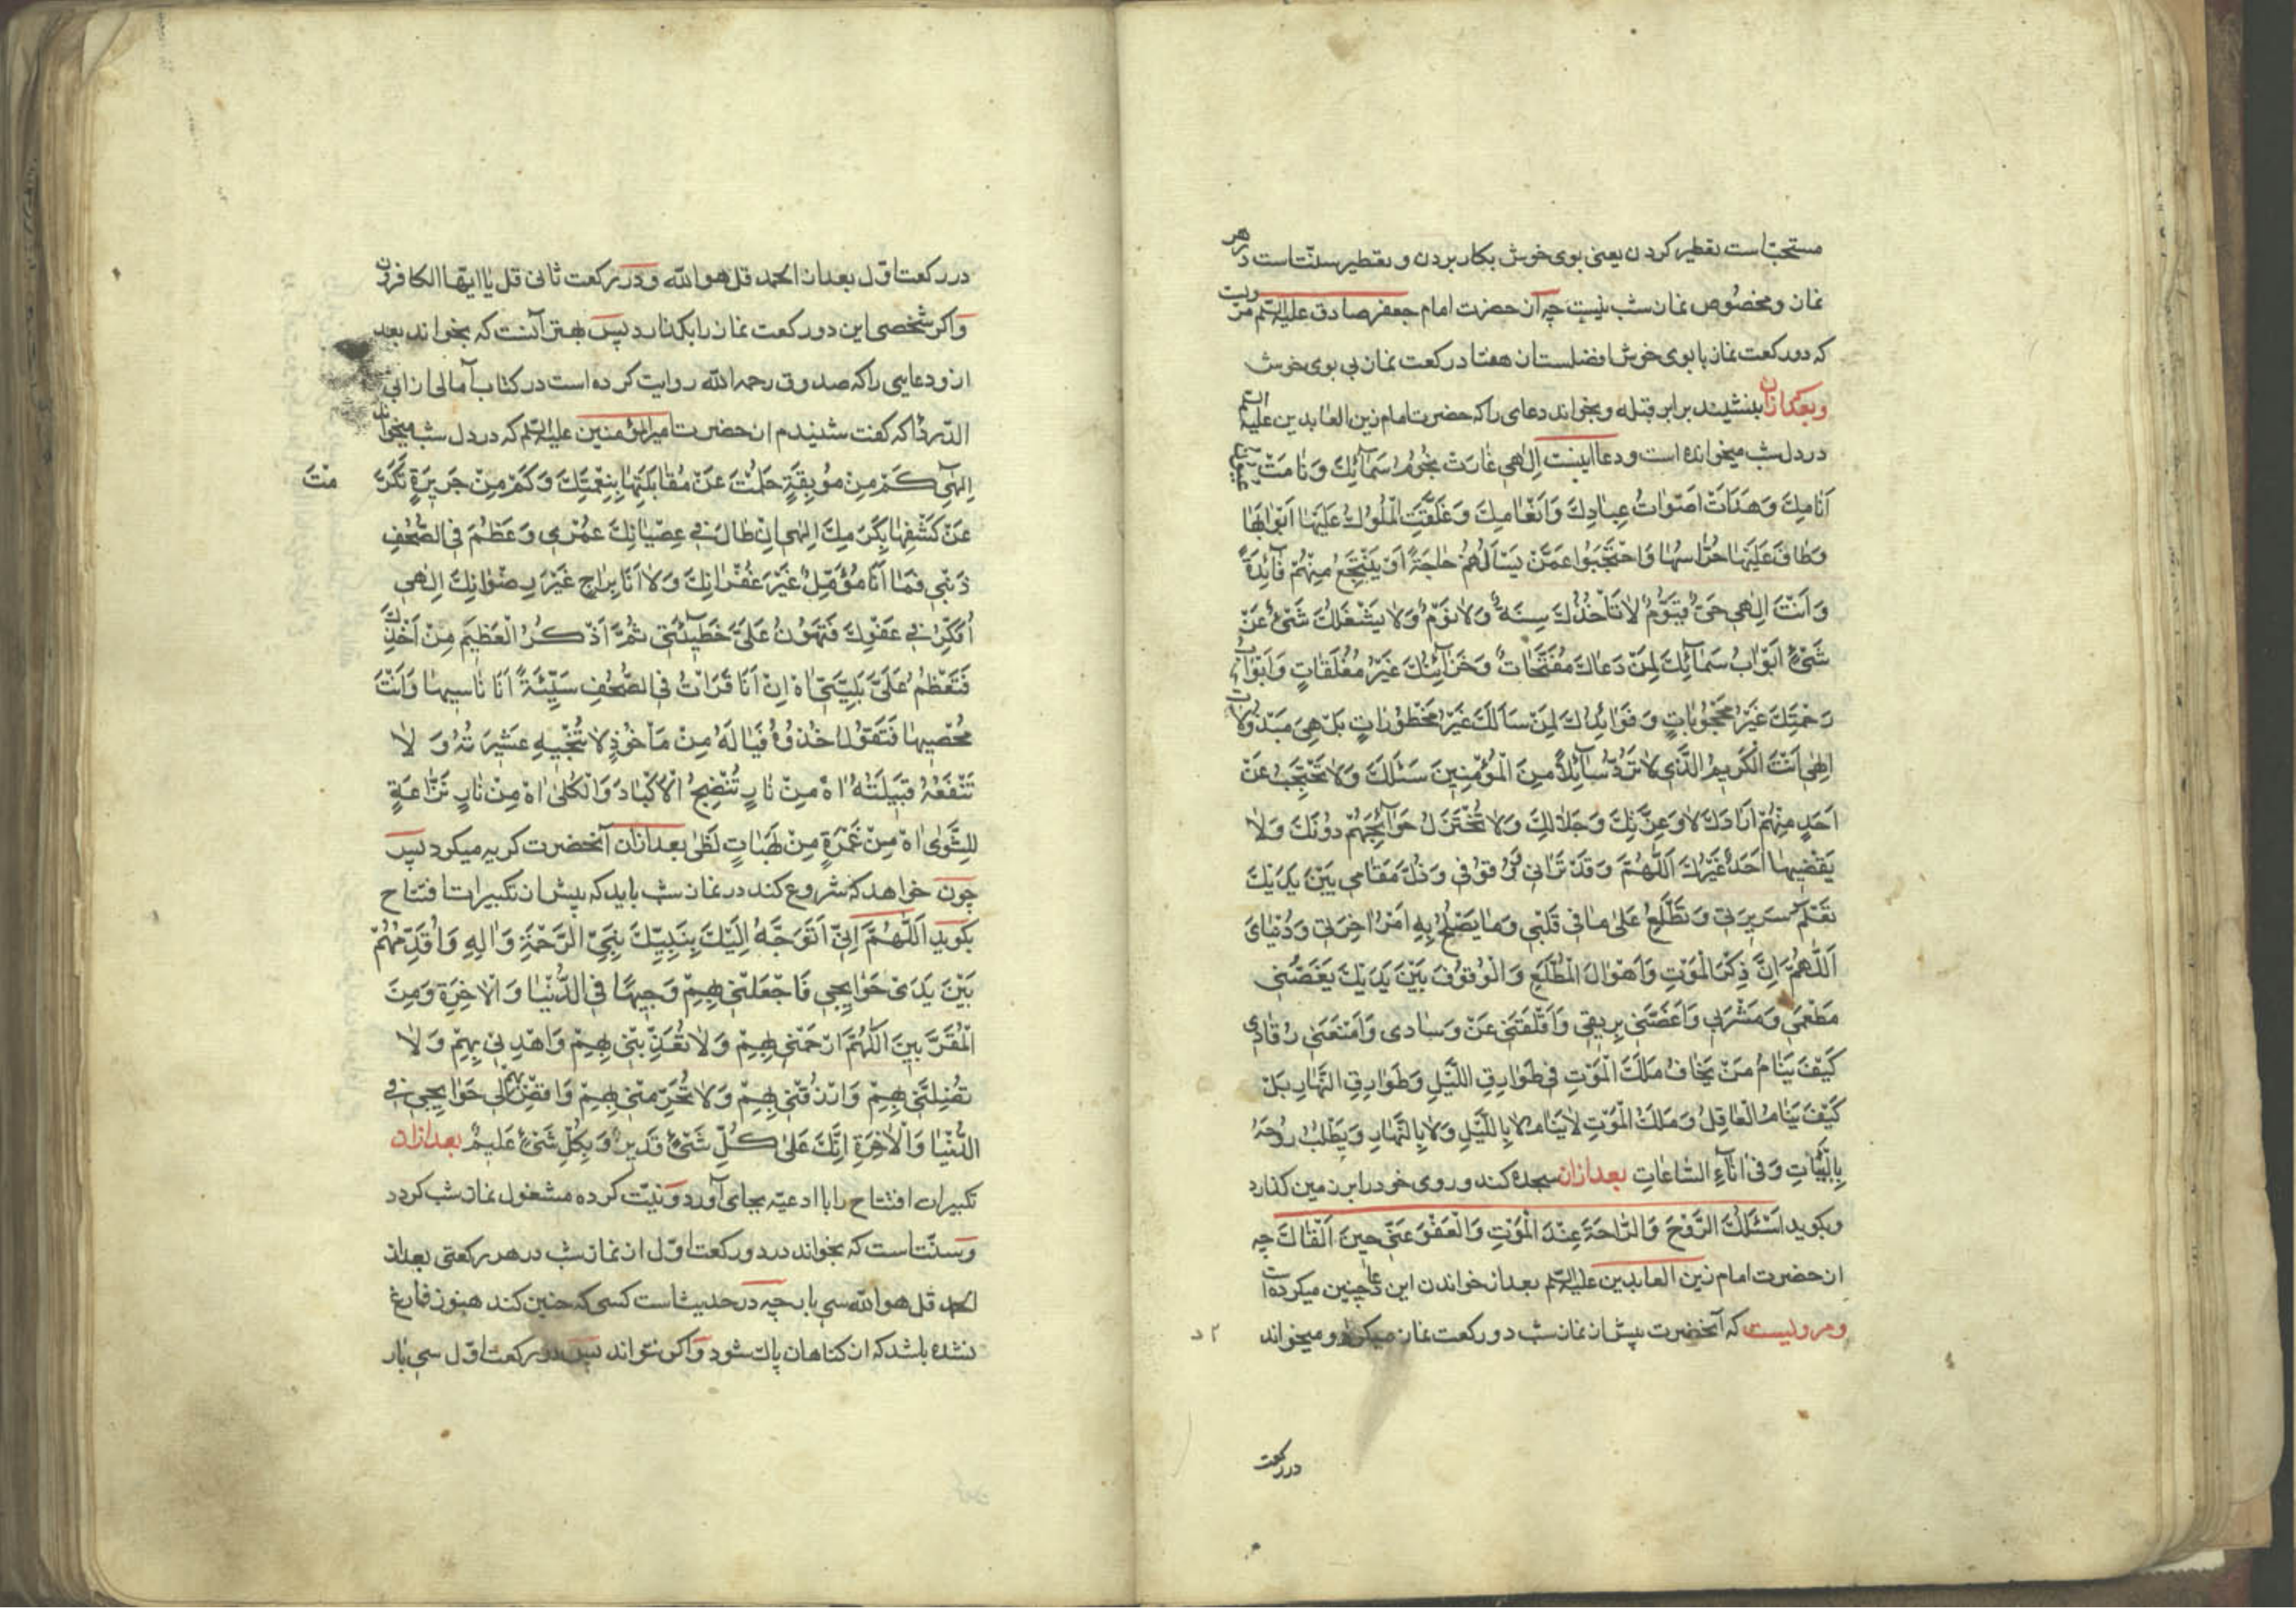 مستحبّ است تعطیر کردن یعنی بوی خوش بکار بردن و تعطیر سنّت است در هر
نماز و مخصوص نماز شب نیست چه از حضرت امام جعفر صادق علیه السّلم مرویست
که دو رکعت نماز با بوی خوش افضلست از هفتاد رکعت نماز بی بوی خوش
وبعد ازان بنشیند برابر قبله و بخواند دعای را که حضرت امام زین العابدین علیه السّلم
در دل شب میخوانده است و دعا اینست اِلٰهی غٰارَتْ نُجُومُ سَمٰآئِكَ وَ نٰامَتْ عُیُونُ
اَنٰامِكَ وَ هَدَاَتْ اَصْوٰاتُ عِبٰادِكَ وَ اَنْعٰامِكَ وَ غَلَّقَتِ الْمُلُوكُ عَلَیْهٰا اَبْوٰابَهٰا
وَ طٰافَ عَلَیْهٰا حُرّٰاسُهٰا وَ احْتَجَبُوا عَمَّنْ یَسْاَلُهُمْ حٰاجَةً اَوْ یَنْتَجِعُ مِنْهُمْ فٰآئِدَةً
وَ اَنْتَ اِلٰهی حَیٌّ قَیُّومٌ لٰا تَاْخُذُكَ سِنَةٌ وَ لٰا نَوْمٌ وَ لٰا یَشْغَلُكَ شَیْءٌ عَنْ
شَیْءٍ اَبْوٰابُ سَمٰآئِكَ لِمَنْ دَعٰاكَ مُفَتَّحٰاتٌ وَ خَزٰآئِنُكَ غَیْرُ مُغَلَّقٰاتٍ وَ اَبْوٰابُ
رَحْمَتِكَ غَیْرُ مَحْجُوبٰاتٍ وَ فَوٰائِدُكَ لِمَنْ سَاَلَكَ غَیْرُ مَحْظُورٰاتٍ بَلْ هِیَ مَبْذُولٰاتٌ
اِلٰهی اَنْتَ الْكَریمُ الَّذی لٰا تَرُدُّ سٰآئِلاً مِنَ الْمُؤْمِنینَ سَئَلَكَ وَ لٰا تَحْتَجِبُ عَنْ
اَحَدٍ مِنْهُمْ اَرٰادَكَ لٰا وَ عِزَّتِكَ وَ جَلٰالِكَ وَ لٰا تُخْتَزَلُ حَوٰآئِجُهُمْ دُونَكَ وَ لٰا
یَقْضیهٰا اَحَدٌ غَیْرُكَ اَللّٰهُمَّ وَ قَدْ تَرٰانی وَ وُقُوفی وَ ذُلَّ مَقٰامی بَیْنَ یَدَیْكَ
تَعْلَمُ سَریرَتی وَ تَطَّلِعُ عَلٰی مٰا فی قَلْبی وَ مٰا یَصْلُحُ بِهِ اَمْرُ اٰخِرَتی وَ دُنْیٰایَ
اَللّٰهُمَّ اِنَّ ذِكْرَ الْمَوْتِ وَ اَهْوٰالَ الْمُطَّلَعِ وَ الْوُقُوفَ بَیْنَ یَدَیْكَ یَغَصَّنی
مَطْعَمی وَ مَشْرَبی وَ اَغَصَّنی بِریقی وَ اَقْلَقَنی عَنْ وِسٰادی وَ اَمْنَعَنی رُقٰادی
كَیْفَ یَنٰامُ مَنْ یَخٰافُ مَلَكَ الْمَوْتِ فی طَوٰارِقِ اللَّیْلِ وَ طَوٰارِقِ النَّهٰارِ بَلْ
كَیْفَ یَنٰامُ الْعٰاقِلُ وَ مَلَكُ الْمَوْتِ لٰا یَنٰامُ لٰا بِاللَّیْلِ وَ لٰا بِالنَّهٰارِ وَ یَطْلُبُ رُوحَهُ
بِالْبَیٰاتِ وَ فی اٰنٰآءِ السّٰاعٰاتِ بعد ازان سجده کند و روی خود را بر زمین گذارد
وبگوید اَسْئَلُكَ الرَّوْحَ وَ الرّٰاحَةَ عِنْدَ الْمَوْتِ وَ الْعَفْوَ عَنّی حینَ اَلْقٰاكَ چه
ان حضرت امام زین العابدین علیه السّلم بعد از خواندن این دعا چنین میکرده است
ومرویست که آنحضرت پیش از نماز شب دو رکعت نماز میکرد و میخواند
در رکعت
در رکعت اوّل بعد از الحمد قل هو اللّه و در رکعت ثانی قل یٰا ایّها الکافرون
واکر شخصی این دو رکعت نماز را بکذارد پس بهتر آنست که بخواند بعد
ازو دعایی را که صدوق رحمه اللّه روایت کرده است در کتاب آمالی از ابی
الدّرداء که کفت شنیدم از حضرت امیر المؤمنین علیه السّلم که در دل شب میخواند
اِلٰهی كَمْ مِنْ مُوبِقَةٍ حَلُمْتَ عَنْ مُقٰابَلَتِهٰا بِنِعْمَتِكَ وَ كَمْ مِنْ جَریرَةٍ تَكَرَّ مْتَ
عَنْ كَشْفِهٰا بِكَرَمِكَ اِلٰهی اِنْ طٰالَ فی عِصْیٰانِكَ عُمْری وَ عَظُمَ فی الصُّحُفِ
ذَنْبی فَمٰا اَنَا مُؤَمِّلٌ غَیْرَ غُفْرٰانِكَ وَ لٰا اَنَا بِرٰاجٍ غَیْرَ رِضْوٰانِكَ اِلٰهی
اُفَكِّرُ فی عَفْوِكَ فَتَهُونُ عَلَیَّ خَطیٓئَتی ثُمَّ اَذْكُرُ الْعَظیمَ مِنْ اَخْذِكَ
فَتَعْظُمُ عَلَیَّ بَلِیَّتی اٰهْ اِنْ اَنَا قَرَاْتُ فی الصُّحُفِ سَیِّئَةً اَنَا نٰاسیهٰا وَ اَنْتَ
مُحْصیهٰا فَتَقُولُ خُذُوهُ فَیٰا لَهُ مِنْ مَاْخُوذٍ لٰا تُنْجیهِ عَشیرَتُهُ وَ لٰا
تَنْفَعُهُ قَبیلَتُهُ اٰهْ مِنْ نٰارٍ تُنْضِجُ الْاَكْبٰادَ وَ الْكُلٰی اٰهْ مِنْ نٰارٍ نَزّٰاعَةٍ
لِلشَّوٰی اٰهْ مِنْ غَمْرَةٍ مِنْ لَهَبٰاتِ لَظٰی بعد ازان آنحضرت کریه میکرد پس
چون خواهد که شروع کند در نماز شب باید که پیش از تکبیرات افتتاح
بکوید اَللّٰهُمَّ اِنّی اَتَوَجَّهُ اِلَیْكَ بِنَبِیِّكَ نَبِیِّ الرَّحْمَةِ وَ اٰلِهِ وَ اُقَدِّمُهُمْ
بَیْنَ یَدَیْ حَوٰایِجی فَاجْعَلْنی بِهِمْ وَجیهًا فی الدُّنْیٰا وَ الْاٰخِرَةِ وَ مِنَ
الْمُقَرَّبینَ اَللّٰهُمَّ ارْحَمْنی بِهِمْ وَ لٰا تُعَذِّبْنی بِهِمْ وَ اهْدِنی بِهِمْ وَ لٰا
تُضِلَّنی بِهِمْ وَ ارْزُقْنی بِهِمْ وَ لٰا تُحَرِّمْنی بِهِمْ وَ اقْضِ لی حَوٰایِجی فی
الدُّنْیٰا وَ الْاٰخِرَةِ اِنَّكَ عَلٰی كُلِّ شَیْءٍ قَدیرٌ وَ بِكُلِّ شَیْءٍ عَلیمٌ بعد ازان
تکبیرات افتتاح را با ادعیّه بجای آورد و نیّت کرده مشغول نماز شب کردد
وسنّت است که بخواند در دو رکعت اوّل از نماز شب در هر رکعتی بعد از
الحمد قل هو اللّه سی بار چه در حدیث است کسی که چنین کند هنوز فارغ
نشده باشد که از کناهان پاك شود واکر نتواند پس در رکعت اوّل سی بار